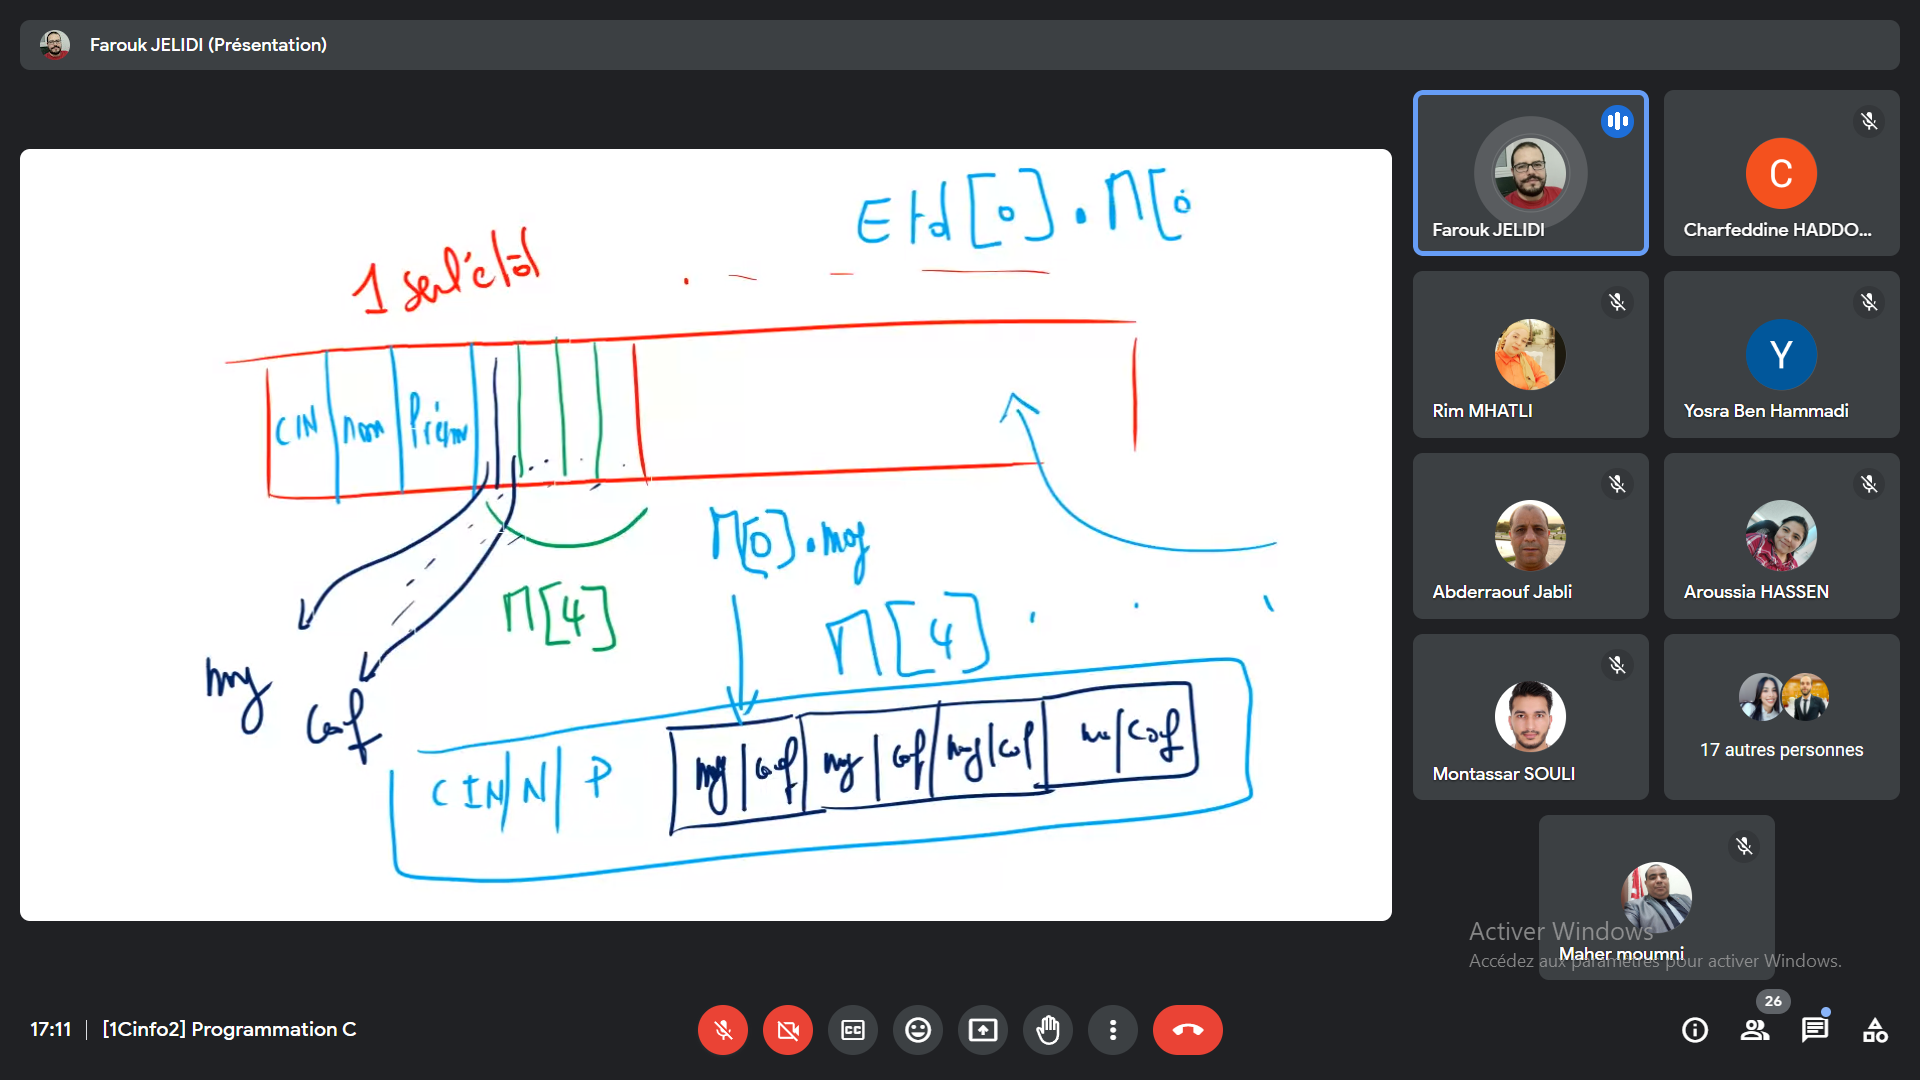 Farouk JELIDI (Présentation)
Etd[0].M[0
1 seul étd
CIN nom Prénom
M[0].moy
M[4]
M[4]
moy
Coef
CIN N P moy Coef moy Coef moy Coef Coef
Farouk JELIDI
C
Charfeddine HADDO...
Rim MHATLI
Y
Yosra Ben Hammadi
Abderraouf Jabli
Aroussia HASSEN
Montassar SOULI
17 autres personnes
Maher moumni
Activer Windows
Accédez aux paramètres pour activer Windows.
17:11 | [1Cinfo2] Programmation C
CC
26